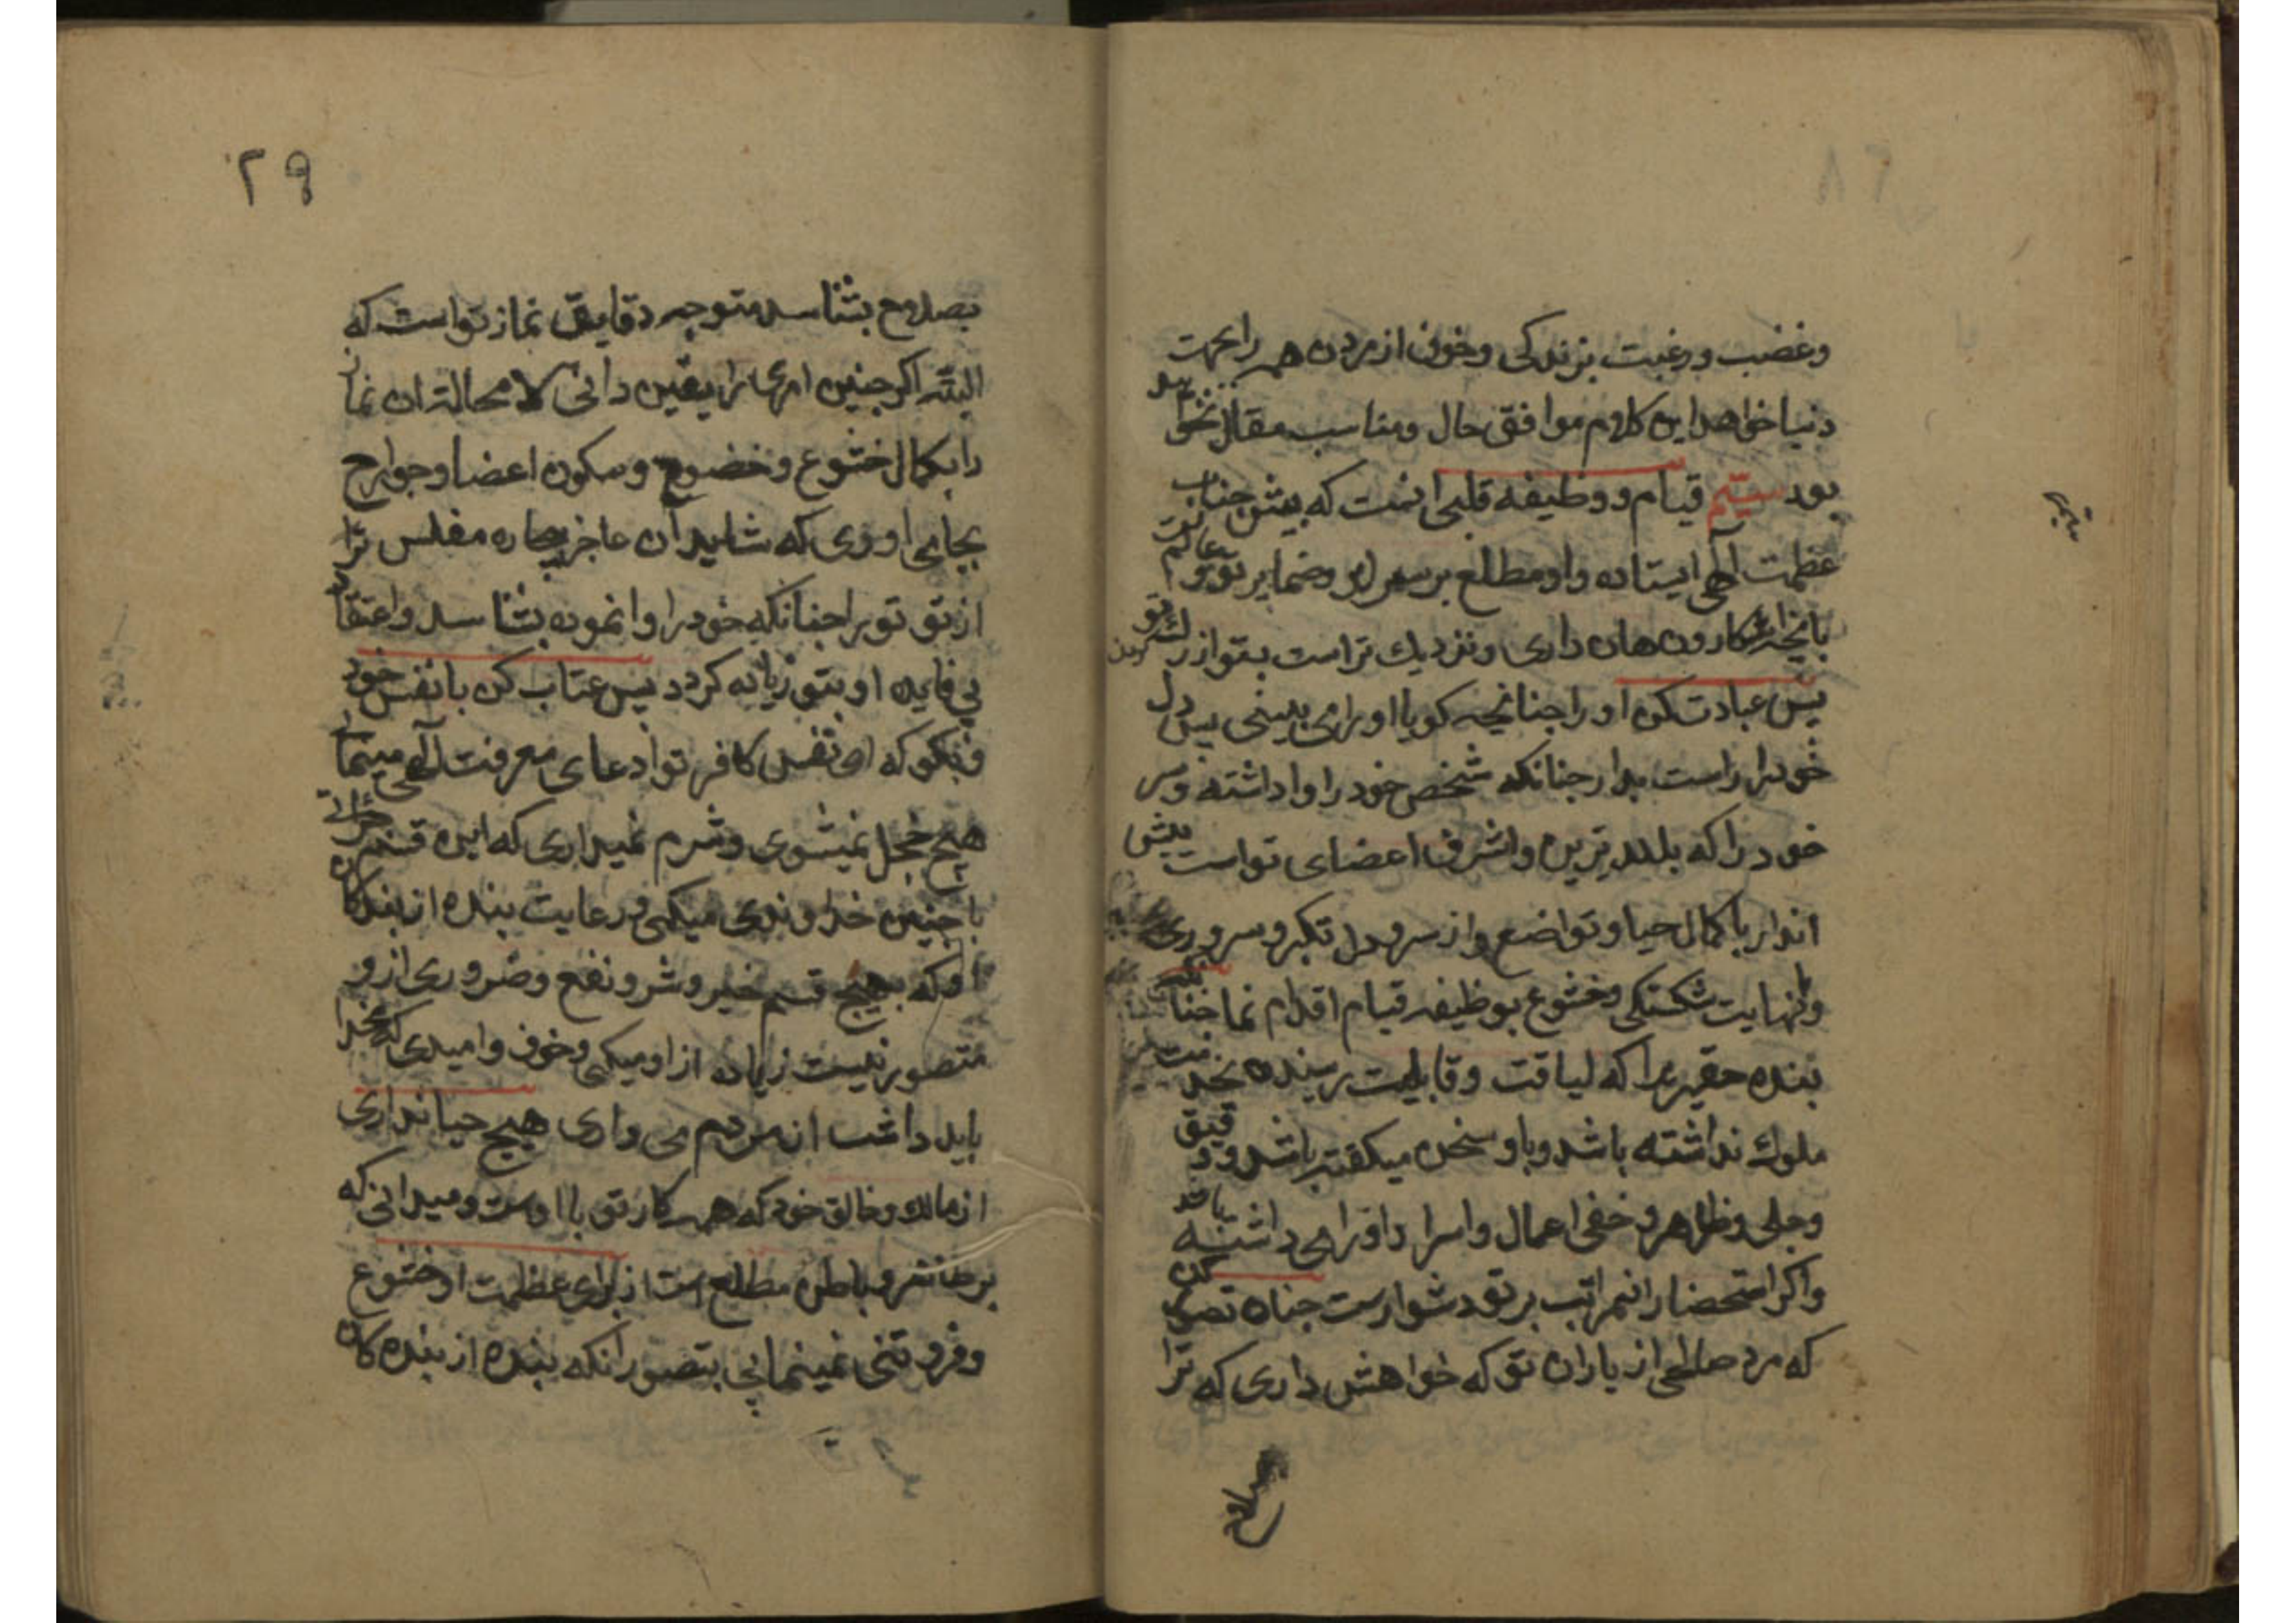 وغضب ورغبت بزندکی وخوف از مردن همه را بجهت
دنیا خواهد این کلام موافق حال ومناسب مقال نخواهد
بود سیم قیام ووظیفه قلبی انست که پیش جناب
عظمت الهی ایستاده واو مطلع بر سرایر وضمایر تو وعالم
بانچه اشکار ونهان داری ونزدیک تراست بتو از رک کردن تو
پس عبادت کن او را چنانچه کویا او را می بینی پس دل
خود را راست بدار چنانکه شخص خود را واداشته وسر
خود را که بلندترین واشرف اعضای تواست پیش
انداز باکمال حیا وتواضع واز سر ودل تکبر وسروری
ونهایت شکستکی وخشوع بوظیفه قیام اقدام نما چنا
بنده حقیریرا که لیاقت وقابلیت رسیدن بخدمت
ملوک نداشته باشد وباو سخن میکفته باشد ودقیق
وجلی وظاهر وخفی اعمال واسرار او را می داشته باشد
واکر استحضار انمراتب بر تو دشوارست چنان تصور کن
که مرد صالحی از یاران تو که خواهش داری که ترا
بصلاح
۲۹
بصلاح بشناسد متوجه دقایق نماز تواست که
البته اکر چنین امری را یقین دانی لا محاله ان نماز
را بکمال خشوع وخضوع وسکون اعضا وجوارح
بجای اوری که شاید ان عاجز بیچاره مفلس ترا
از تو توبرا چنانکه خود را وانموده بشناسد واعتقاد
بی فایده او بتو زیاده کردد پس عتاب کن با نفس خود
وبکو که ای نفس کافر تو ادعای معرفت الهی مینمائی
هیچ خجل نمیشوی وشرم نمیداری که این قسم
با چنین خداوندی میکنی ورعایت بنده از بندکان
او که بهیچ قسم خیر وشر ونفع وضرری از و
متصور نیست زیاده از او میکنی وخوف وامیدی که بخدا
باید داشت از مردم می داری هیچ حیا نداری
از مالک وخالق خود که همه کار تو با اوست ومیدانی که
بر ظاهر وباطن مطلع است از برای عظمت او خشوع
وفروتنی نمینمائی بتصور انکه بنده از بنده کان